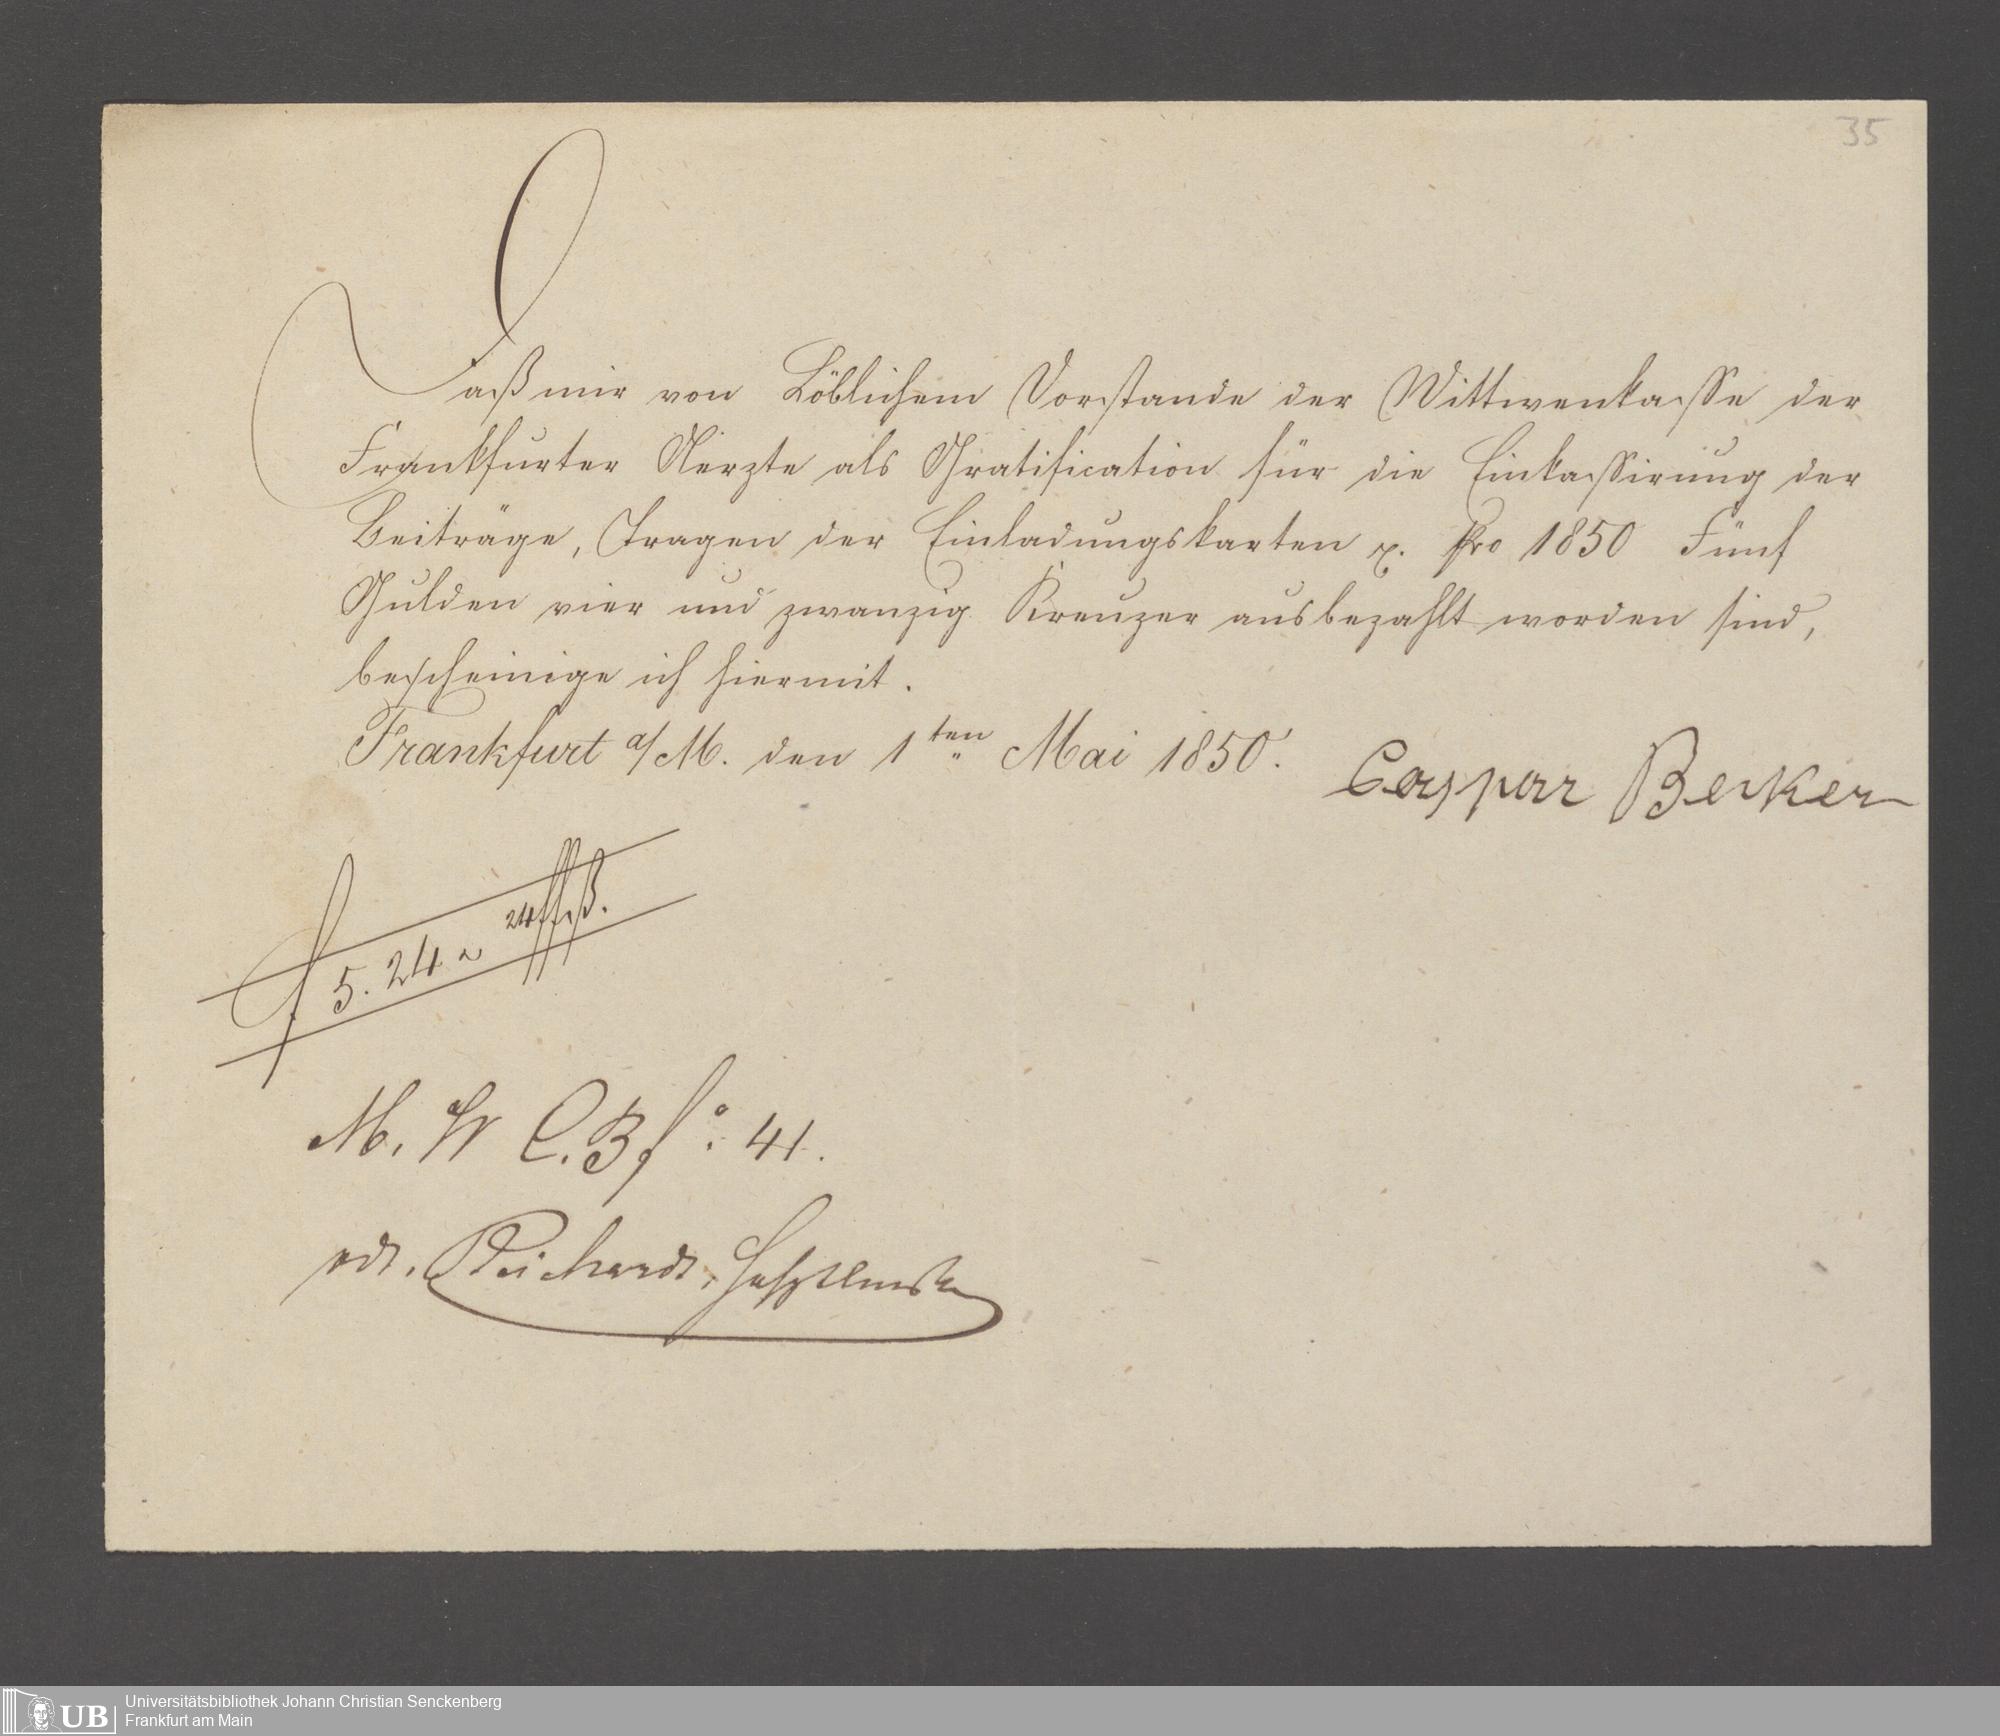 35
Daß mir von Löblichem Vorstande der Wittwenkasse der
Frankfurter Aerzte als Gratification für die Einkassirung der
Beiträge, Tragen der Einladungskarten x. Pro 1850 Fünf
Gulden vier und zwanzig Kreuzer ausbezahlt worden sind,
bescheinige ich hiermit.
Frankfurt a/M. den 1ten Mai 1850.
Caspar Becker
f 5. 24 24
M. W C. B. fo: 41.
vdt. Reichard,
UB
Universitätsbibliothek Johann Christian Senckenberg
Frankfurt am Main